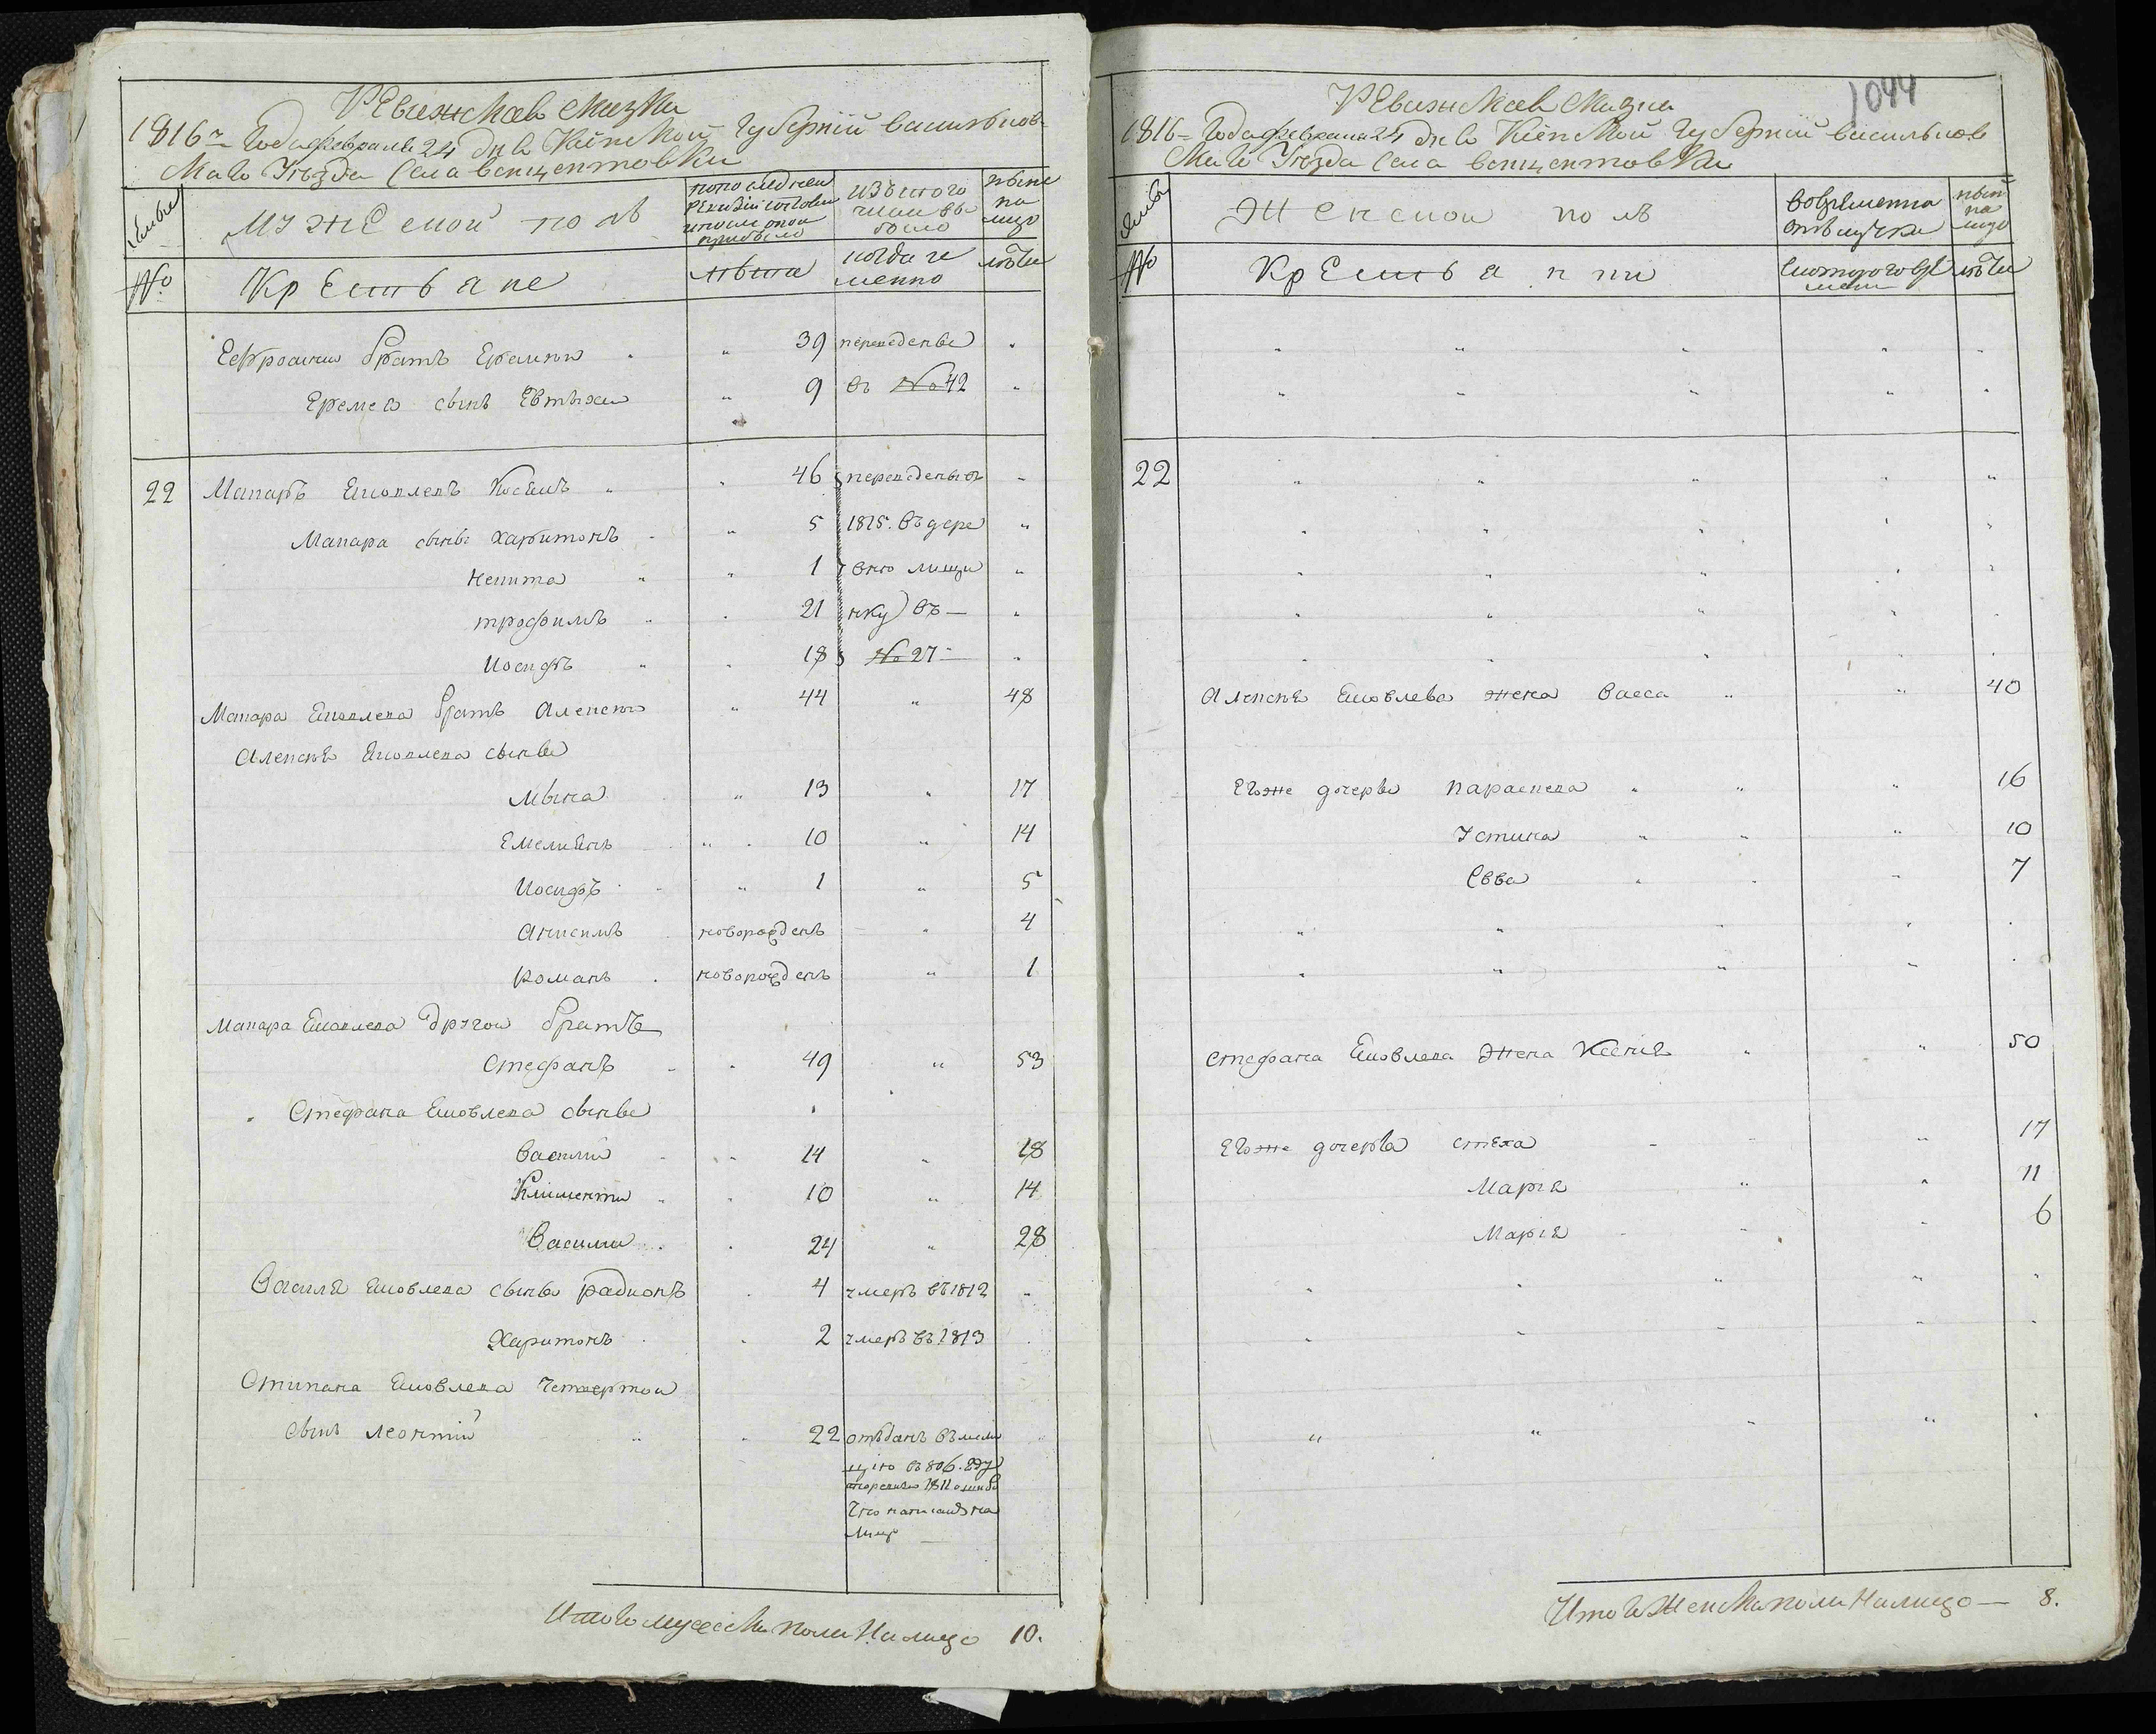 Ревизская сказка
1816го Года февраля 24 дня Киевской губернии васильков
скаго Уезда Села
Семьи
мужеской полъ
по последней
Ревизии состояло
и после оной
прибыло
изътого
числа вы
было
ныне
на
лицо
№
Крестьяне
лета
когда и
менно
лета
братъ 39 переведены "
Еремея сынъ Евтыхи " 9 въ № 42 "
22 Макаръ Яковлевъ " 46 переведены въ "
Макара сынъ харитонъ " 5 1815. въ дере "
Никита " 1 вню "
трофимъ " 21 нку) въ — "
Иосифъ " 18 № 27 — "
Макара Яковлева братъ Алексей " 44 " 48
Алексея Яковлева сынве
" 13 " 17
Емелиянъ " 10 " 14
Иосифъ " 1 " 5
Анисимъ новорожденъ " 4
Романъ новорожденъ " 1
Макара Яковлева другой братъ
Стефанъ " 49 " 53
Стефана Яковлева сынве
Василий " 14 " 18
Климентий " 10 " 14
Василий " 24 " 28
Василя Яковлева сынве радионъ " 4 умеръ въ 1812 "
Харитонъ " 2 умеръ въ 1813 "
Стипана Яковлева Четвертой
сынъ леонтий " 22 отъданъ въ мили
цию въ 806. году
1811
что написанъ на
лицо
Итого мужеска пола Налицо 10.
1044
Ревизская Сказка
1816го Года февраля 24 дня Киевской губернии васильков
скаго Уезда Села
Семьи
Женской полъ
вовременной
отълучке
ныне
на
лицо
№
Крестьянки
Скоторого вре
мени
лета
22
Алексея Яковлева жена Васса " " 40
Егоже дочерве параскева " " " 16
Устина " " " 10
Евва " " " 7
Стефана Яковлева Жена Ксения " " 50
Егоже дочерве стеха " " " 17
Мария " " 11
Мария " " 6
Итого Женска пола Налицо — 8.